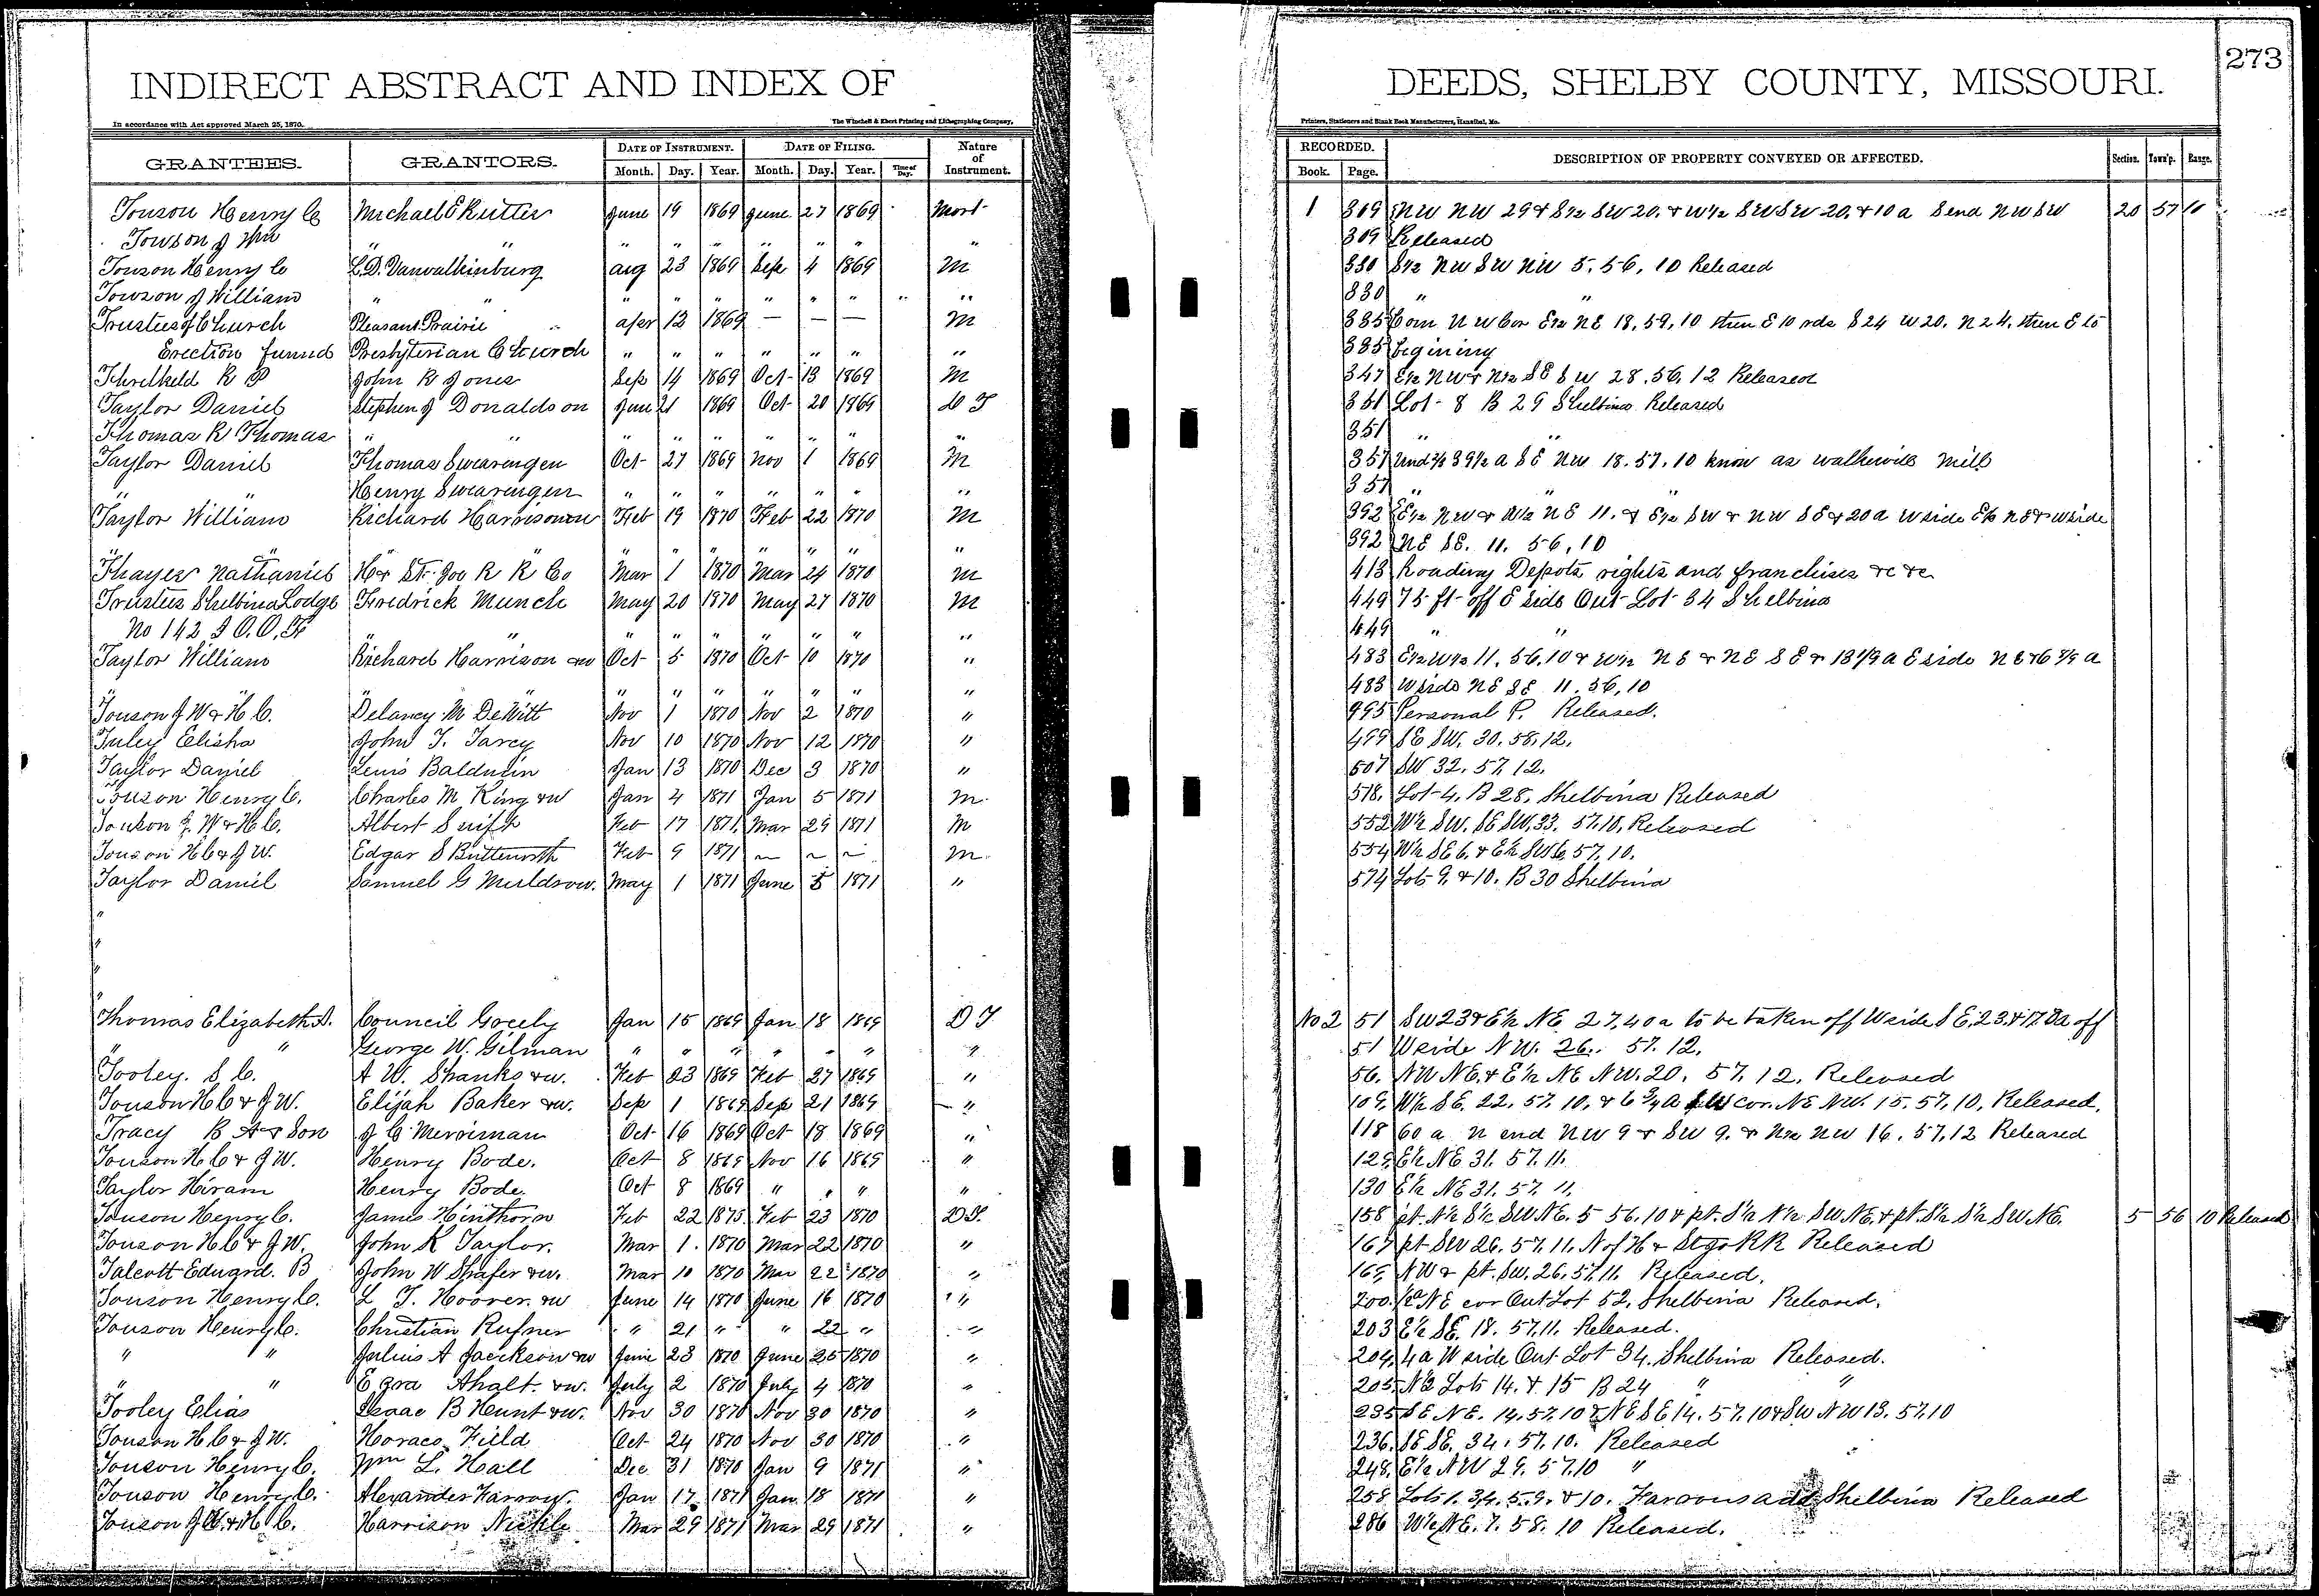 273
INDIRECT ABSTRACT AND INDEX OF DEEDS, SHELBY COUNTY, MISSOURI.
In accordance with Act approved March 25, 1870. The Winchell & Ebert Printing and Lithographing Company, Printers, Stationers and Blank Book Manufacturers, Hannibal, Mo.
GRANTEES. GRANTORS. DATE OF INSTRUMENT. DATE OF FILING. Nature of Instrument. RECORDED. DESCRIPTION OF PROPERTY CONVEYED OR AFFECTED. Section. Town'p. Range.
Month. Day. Year. Month. Day. Year. Time of Day. Book. Page.
Touson Henry C Michael E Rutter June 19 1869 June 27 1869 Mort 1 309 NW NW 29 & S½ SW 20. & W½ SW SW 20. & 10 a S end NW SW 20 57 10
Towson J Wm " " " " " " " " " 309 Released
Touson Henry C L.D. Vanvalkinburg aug 23 1869 Sep 4 1869 M 330 S½ NW SW NW 5. 56, 10 Released
Towson J William " " " " " " " " " " 330 " "
Trustees of Church Pleasant Prairie apr 12 1869 — — — M 335 Com N W Cor E½ NE 18, 59, 10 then E 10 rds S 24 W 20. N 24. then E to
Erection funnd Presbyterian Church " " " " " " " 335 begining
Threlkeld R P John R Jones Sep 14 1869 Oct 13 1869 M 347 E½ NW & N½ SE SW 28. 56, 12 Released
Taylor Daniel Stephen J Donaldson June 21 1869 Oct 20 1869 D T 351 Lot 8 B 29 Shelbina Released
Thomas R Thomas " " " " " " " " " 351 " "
Taylor Daniel Thomas Swearengen Oct 27 1869 Nov 1 1869 M 357 Und ⅔ 39½ a SE NW 18. 57. 10 know as walkwills Mill
Henry Swearengen " " " " " " " 357 " "
Taylor William Richard Harrison Feb 19 1870 Feb 22 1870 M 392 E½ NW & W½ NE 11. & E½ SW & NW SE & 20 a W side E½ NE & W side
" " " " " " " " " 392 NE SE. 11. 56, 10
Thayer Nathaniel H & St. Joe R R Co Mar 1 1870 Mar 24 1870 M 413 Roadway Depots, rights and franchises &c &c
Trustees Shelbina Lodge Fredrick Munch May 20 1870 May 27 1870 M 449 75 ft off E side Out Lot 34 Shelbina
No 142 I O. O. F " " " " " " " " " 449 " "
Taylor William Richard Harrison Oct 5 1870 Oct 10 1870 " 483 E½ W½ 11. 56, 10 & W½ NE & NE SE & 13 a E side NE & 6 a
" " " " " " " " " 483 W side NE SE 11. 56, 10
Touson J W & H C. Delancy M DeWitt Nov 1 1870 Nov 2 1870 " 495 Personal P. Released.
Tuley Elisha John T. Tarcy Nov 10 1870 Nov 12 1870 " 499 SE SW. 30. 58. 12.
Taylor Daniel Lewis Baldwin Jan 13 1870 Dec 3 1870 " 507 SW 32. 57, 12.
Touson Henry C. Charles M King &w Jan 4 1871 Jan 5 1871 M. 518. Lot 4. B 28. Shelbina Released
Touson J. W & H C. Albert Swift Feb 17 1871. Mar 29 1871 M 552 W½ SW. SE SW. 33. 57. 10, Released
Touson H C & J W. Edgar S Butterworth Feb 9 1871 ~ ~ ~ M. 554 W½ SE 6. & E½ SW 6. 57. 10.
Taylor Daniel Samuel G Muldrow. May 1 1871 June 5 1871 " 574 Lots 9. & 10. B 30 Shelbina
"
"
"
"
Thomas Elizabeth A. Council Gocely Jan 15 1869 Jan 18 1869 D T No 2 51 SW 23 & E½ NE 27, 40 a to be taken off W side SE. 23. & off
" " George W. Gilman " " " " " " " 51 W side NW. 26. 57. 12.
Tooley. S C. A W. Shanks &w. Feb 23 1869 Feb 27 1869 " 56. NW NE. & E½ NE NW. 20. 57. 12. Released
Touson H C & J W. Elijah Baker &w. Sep 1 1869 Sep 21 1869 " 109. W½ SE. 22. 57. 10. & 6 a SW cor. NE NW. 15. 57. 10, Released.
Tracy B A & Son J C Merriman Oct 16 1869 Oct 18 1869 " 118 60 a N end NW 9 & SW 9. & N½ NW 16. 57. 12 Released
Touson H C & J W. Henry Bode. Oct 8 1869 Nov 16 1869 " 129 E½ NE 31. 57. 11.
Taylor Hiram Henry Bode. Oct 8 1869 " " " " 130 E½ NE 31. 57. 11.
Touson Henry C. James Hinthorn Feb 22 1875. Feb 23 1870 D T. 158 pt. N½ S½ SW NE. 5 56. 10 & pt. S½ N½ SW NE. & pt. S½ S½ SW NE. 5 56 10 Released
Touson H C & J W. John K Taylor. Mar 1. 1870 Mar 22 1870 " 167 pt SW 26. 57. 11. N of H & St Jo RR Released
Talcott Edward. B John W Shafer &w. Mar 10 1870 Mar 22 1870 " 169 NW & pt. SW. 26. 57. 11. Released.
Touson Henry C. L T. Hoover. &w June 14 1870 June 16 1870 " 200. NE cor Out Lot 52. Shelbina Released.
Touson Henry C. Christian Rufner " 21 " " 22 " " 203 E½ SE. 18. 57. 11. Released.
" " Julius A Jackson &w June 23 1870 June 25 1870 " 204. 4 a W side Out Lot 34. Shelbina Released.
" " Ezra Ahalt. &w. July 2 1870 July 4 1870 " 205. N½ Lots 14. & 15 B 24 " "
Tooley Elias Isaac B Hunt &w. Nov 30 1870 Nov 30 1870 " 235 SE NE. 14. 57. 10 & NE SE 14. 57. 10 & SW NW 13. 57. 10
Touson H C & J W. Horace Field Oct 24 1870 Nov 30 1870 " 236. SE SE. 34. 57. 10. Released
Touson Henry C. Wm L. Hall Dec 31 1870 Jan 9 1871 " 248. E½ NW 29. 57. 10 "
Touson Henry C. Alexander Farrow. Jan 17 1871 Jan. 18 1871 " 258 Lots 1. 3, 4. 5. 9. & 10. Farrows add Shelbina Released
Touson J W. & H C. Harrison Nickle Mar 29 1871 Mar 29 1871 " 286 W½ NE. 7. 58. 10 Released.